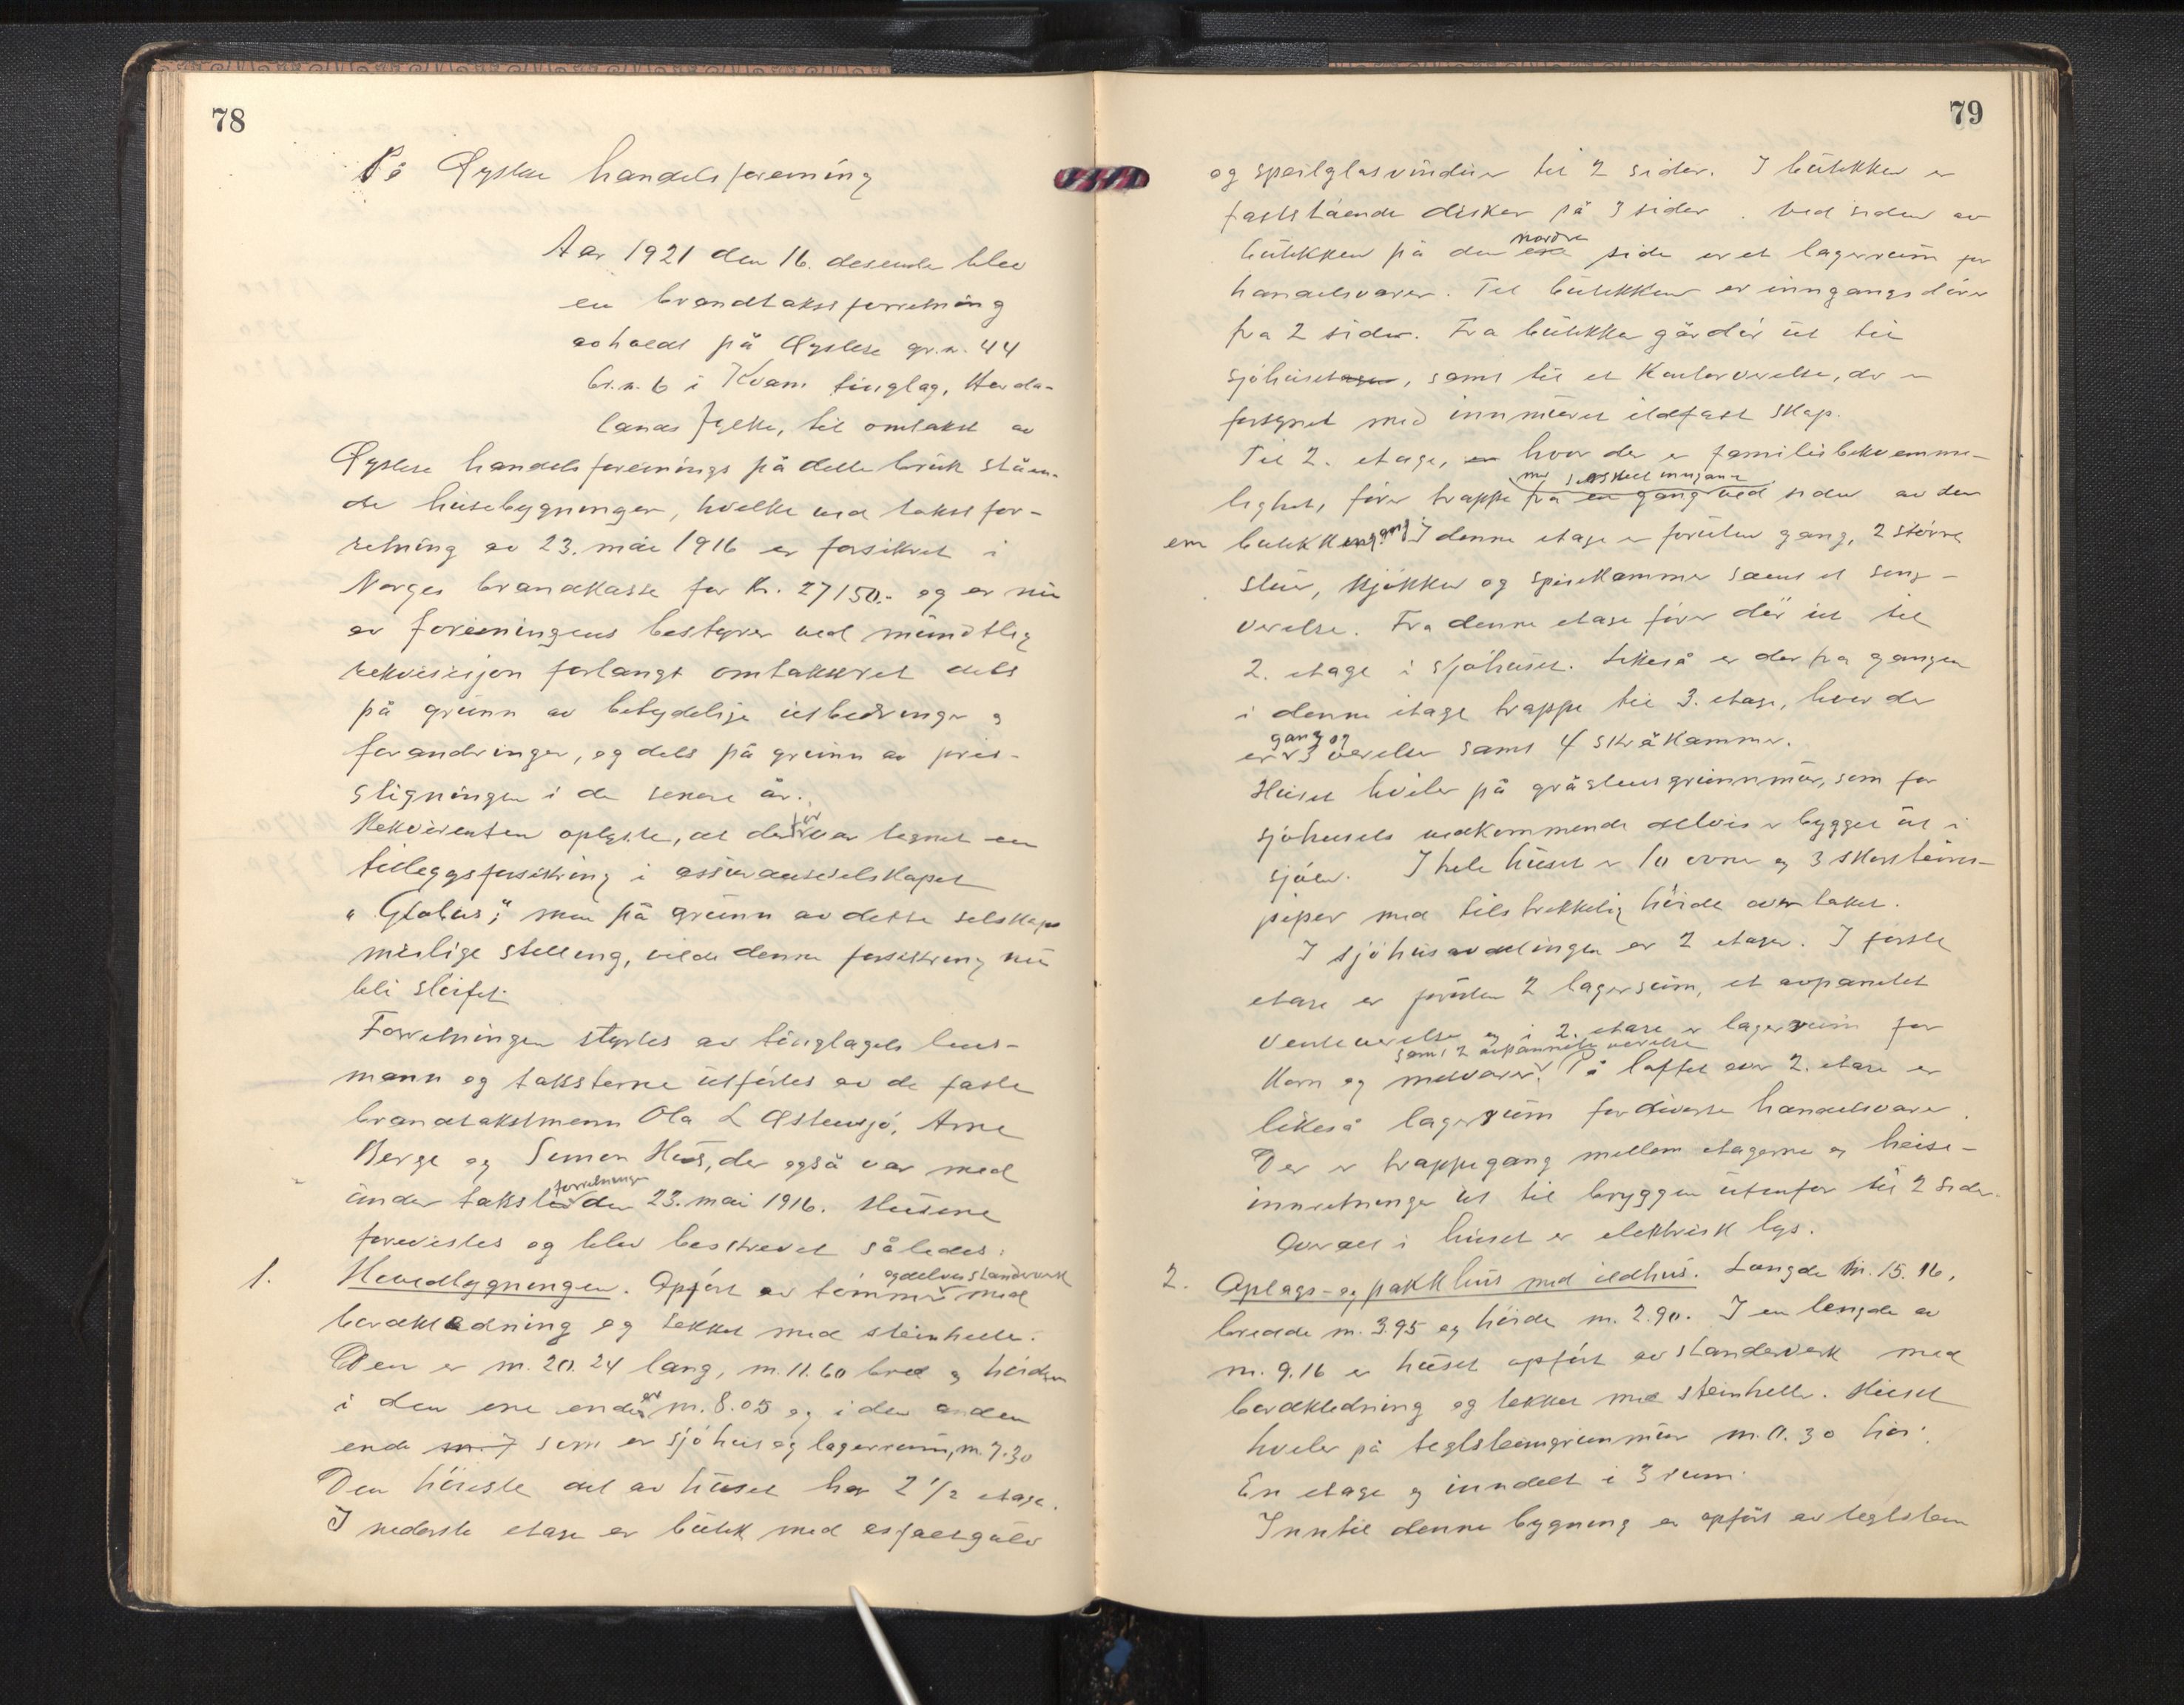 78
På Øystese handelsforening
Aar 1921 den 16. desember blev
en brandtakstforretning
avholdt på Øystese gr.n. 44
br.n. 6 i Kvam tinglag, Horda-
lands fylke, til omtakst av
Øystese handelsforenings på dette bruk ståen-
de husebygninger, hvilke ved takstfor-
retning av 23. mai 1916 er forsikret i
Norges brandkasse for kr. 27150.- og er nu
av foreningens bestyrer ved mundtlig
rekvisisjon forlangt omtakkseret dels
på grunn av betydelige utbedringer og
forandringer, og dels på grunn av pris-
stigningen i de senere år.
Rekvirenten oplyste, at der før var tegnet en
tilleggsforsikring i assuranseselskapet
"Globus", men på grunn av dette selskaps
mislige stilling, vilde denne forsikring nu
bli sløifet.
Forretningen styrtes av tinglagets lens-
mann og taksterne utførtes av de faste
brandtakstmenn Ola L Østensjø, Arne
Berge og Simon Hus, der også var med
under takstforretningen den 23. mai 1916. Husene
forevistes og blev beskrevet således:
1. Hovedbygningen. Opført av tømmer og delvis standerverk med
bordklædning og tekket med steinheller.
Den er m. 20.24 lang, m. 11.60 bred og høiden
i den ene ende er m. 8.05 og i den anden
ende m. 7 som er sjøhus og lagerrum, m. 7.30
Den høieste del av huset har 2 1/2 etage.
I nederste etage er butik med asfaltgulv
79
og speilglasvinduer til 2 sider. I butikken er
faststående disker på 3 sider. Ved siden av
butikken på den nordre side er et lagerrum for
handelsvarer. Til butikken er inngangsdører
fra 2 sider. Fra butikken går dør ut til
sjøhuset, samt til et kontorværelse, der er
forsynet med innmuret ildfast skap.
Til 2. etage, hvor der er familiebekvemme-
lighet, fører trappe med særskilt inngang fra en gang ved siden av den
em butikkinngang. I denne etage er foruten gang, 2 større
stuer, kjøkken og spisekammer samt et seng-
verelse. Fra denne etage fører dør ut til
2. etage i sjøhuset. Likeså er der fra gangen
i denne etage trappe til 3. etage, hvor der
er gang og 3 verelser samt 4 skråkammer.
Huset hviler på gråsteinsgrunnmur, som for
sjøhusets vedkommende delvis er bygget ut i
sjøen. I hele huset er 10 ovner og 3 skorsteins-
piper med tilstrekkelig høide over taket.
I sjøhusavdelingen er 2 etager. I første
etage er foruten 2 lagerrum, et avpanelet
venteverelse og i 2. etage er lagerrum for
korn og melvarer samt 2 avpannelte værelser. På loftet over 2. etage er
likeså lagerrum for diverse handelsvarer.
Der er trappegang mellem etagerne og heise-
innretninger ut til bryggen utenfor til 2 sider.
Overalt i huset er elektrisk lys.
2. Oplags- og pakkhus med ildhus. Længde m. 15.16,
bredde m. 3.95 og høide m. 2.90. I en lengde av
m. 9.16 er huset opført av standerverk med
bordkledning og tekket med steinheller. Huset
hviler på teglsteinsgrunnmur m. 0.30 høi.
En etage og inndelt i 3 rum.
Inntil denne bygning er opført av teglstein